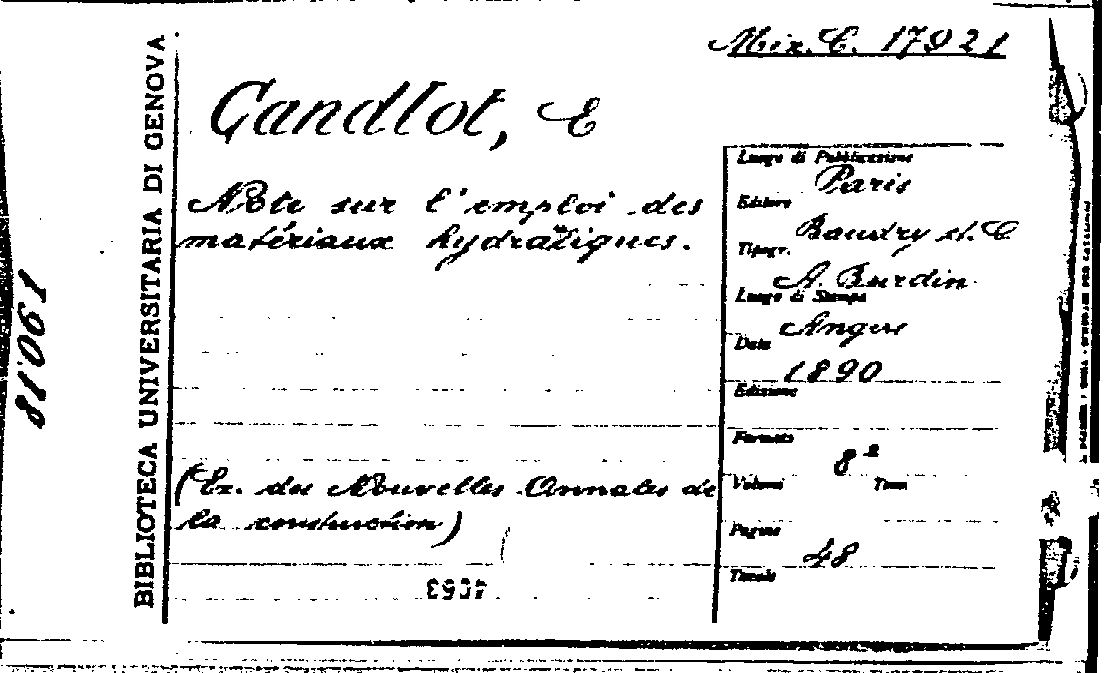 Misc. C. 17921
Candlot, E
Note sur l'emploi des
matériaux hydratiques.
(Ex. des Nouvelles Annales de
la construction)
BIBLIOTECA UNIVERSITARIA DI GENOVA
190.18
Luogo di Pubblicazione
Paris
Editore
Baudry et C
Tipogr.
A. Burdin
Luogo di Stampa
Angers
Data
1890
Edizione
Formato
8º
Volumi Tomi
Pagine
48
Tavole